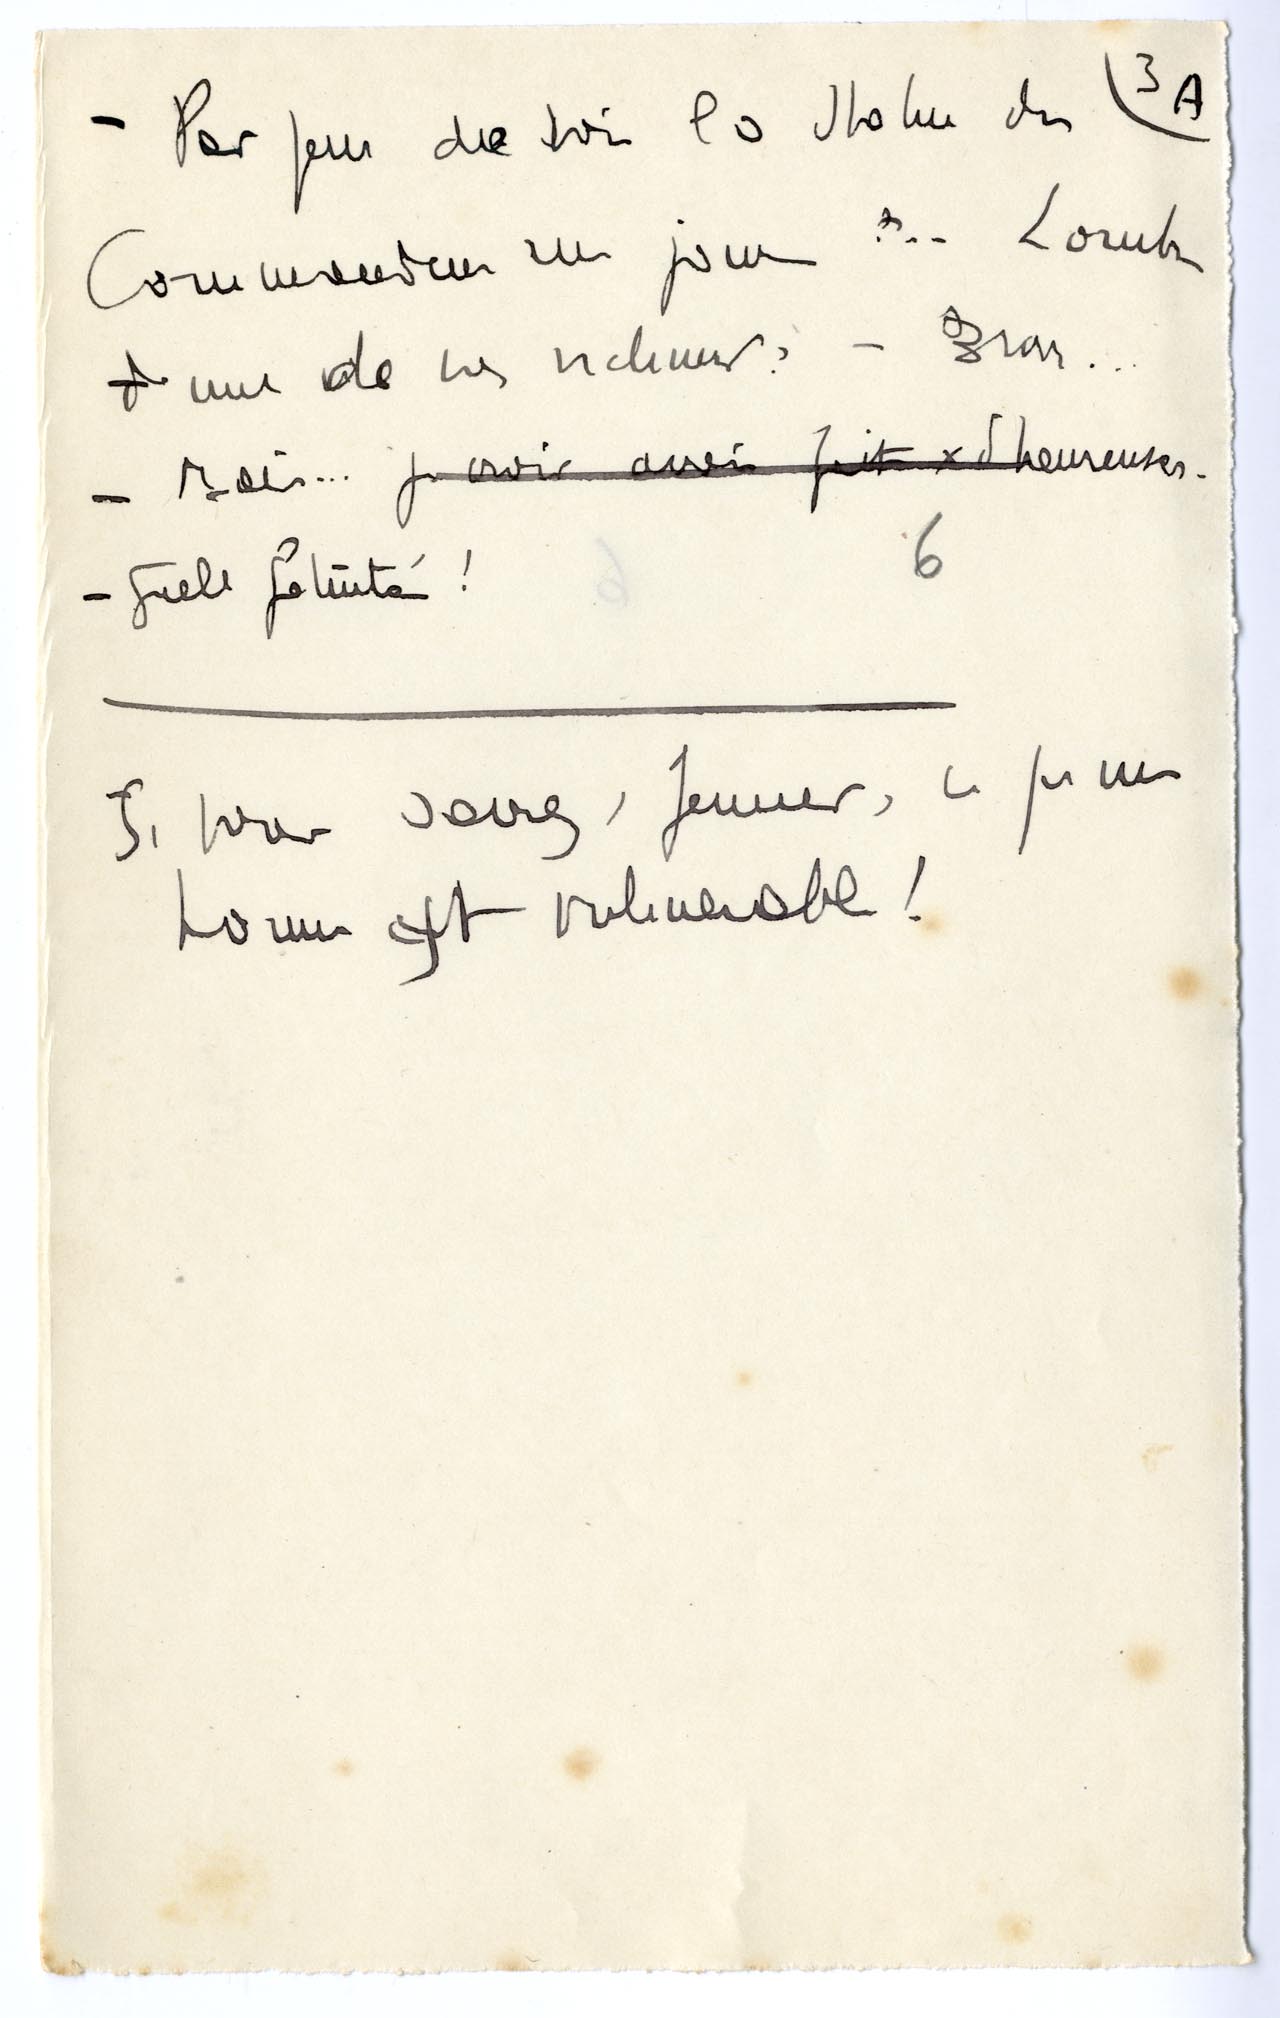 3 A
- Par peur de voir la statue du
Commandeur un jour ?... L'ombre
d'une de vos victimes? - Bras...
- Mais... avoir fait d'heureuses.
- Quelle fatuité !
6
Si vous savez, femmes, ce qu'une
homme est vulnérable !